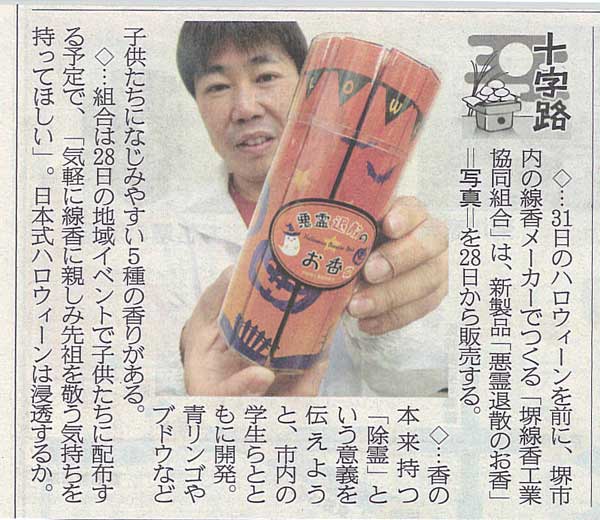 十字路
◇…31日のハロウィーンを前に、堺市
内の線香メーカーでつくる「堺線香工業
協同組合」は、新製品「悪霊退散のお香」
＝写真＝を28日から販売する。
◇…香の
本来持つ
「除霊」と
いう意義を
伝えよう
と、市内の
学生らとと
もに開発。
青リンゴや
ブドウなど
子供たちになじみやすい５種の香りがある。
◇…組合は28日の地域イベントで子供たちに配布す
る予定で、「気軽に線香に親しみ先祖を敬う気持ちを
持ってほしい」。日本式ハロウィーンは浸透するか。
悪霊退散の
お香